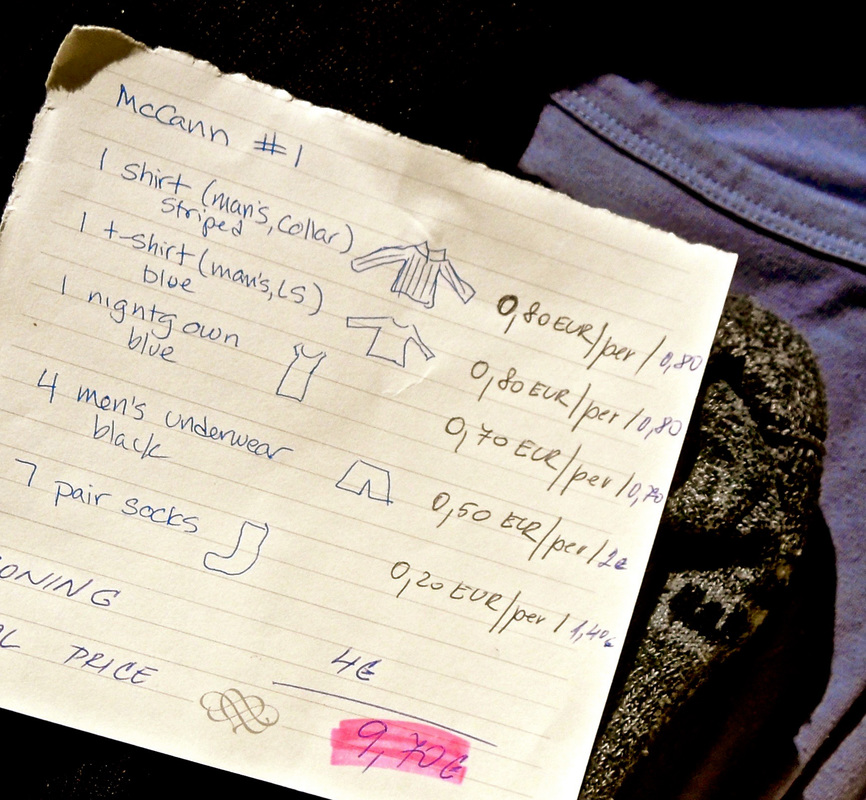 McCann #1
1 shirt (man's, collar)
striped
0,80 EUR/per / 0,80
1 t-shirt (man's, LS)
blue
0,80 EUR/per / 0,80
1 nightgown
blue
0,70 EUR/per / 0,70
4 men's underwear
black
0,50 EUR/per / 2€
7 pair socks
0,20 EUR/per / 1,40€
ONING
4€
L PRICE
9,70€